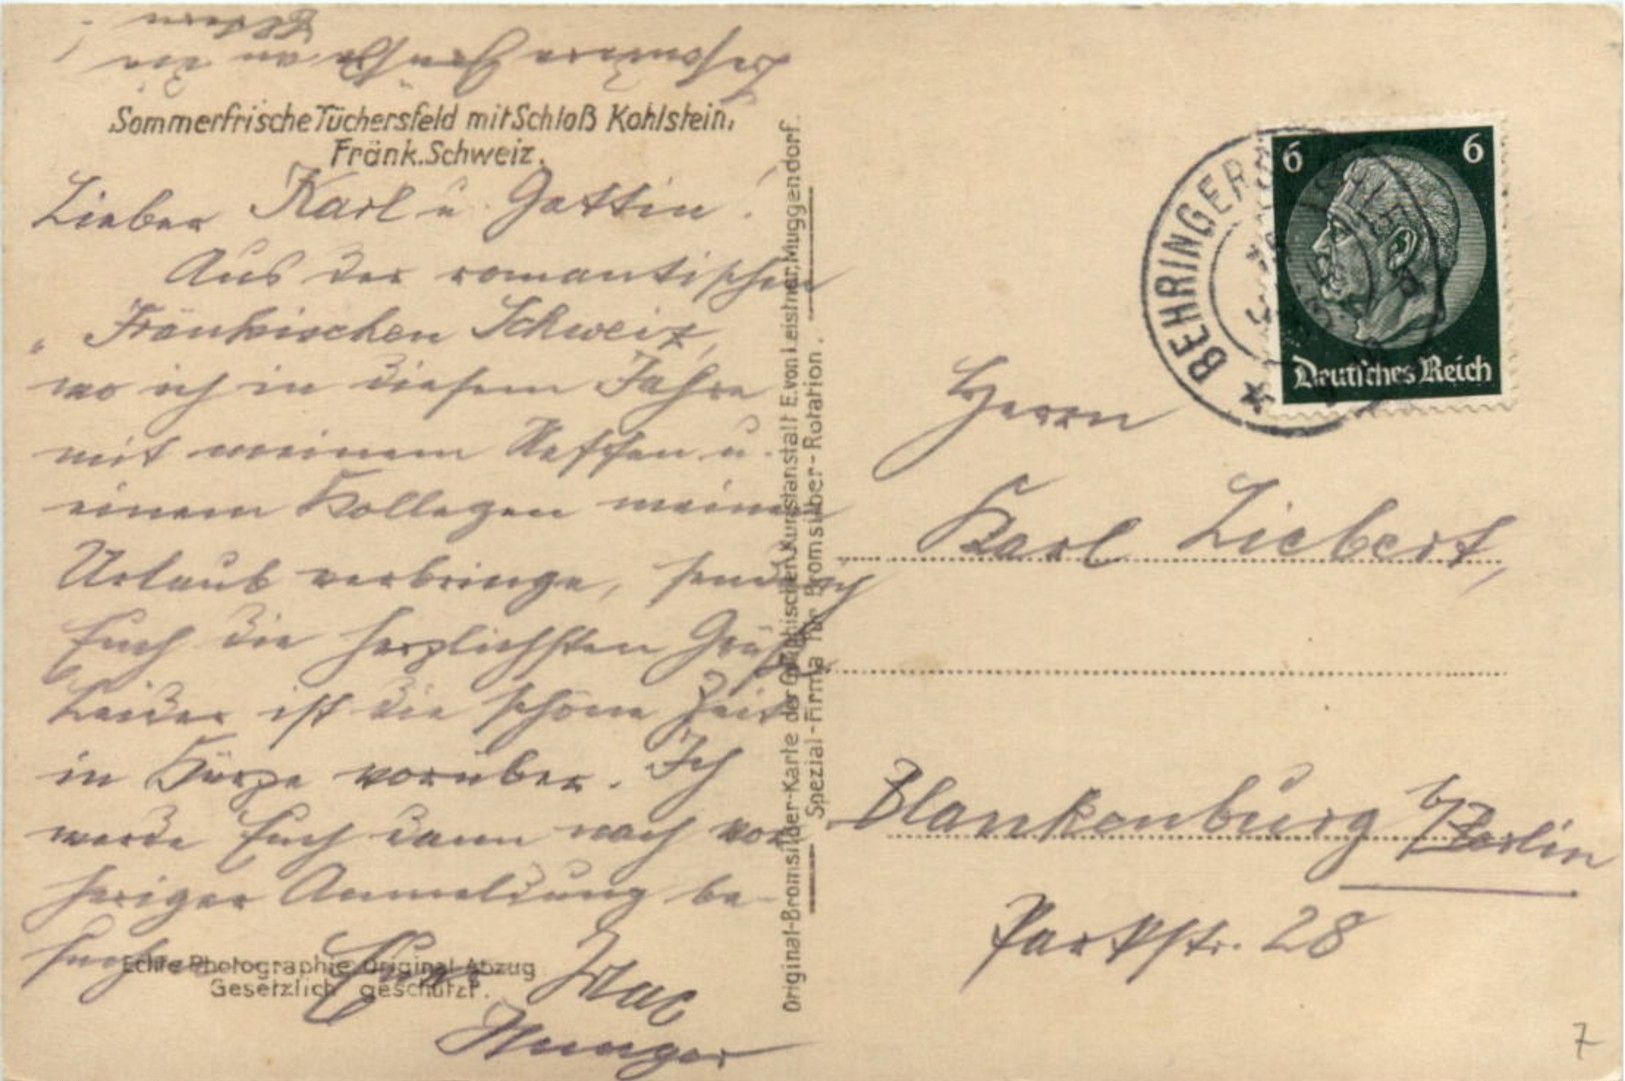 Besondere Grüße an die
Eltern
Sommerfrische Tüchersfeld mit Schloß Kohlstein,
Fränk. Schweiz.
Lieber Karl u. Gattin!
Aus der romantischen
Fränkischen Schweiz,
wo ich in diesem Jahre
mit meinem Neffen u.
einem Kollegen meinen
Urlaub verbringe, sende ich
Euch die herzlichsten Grüße.
Leider ist die schöne Zeit
in Kürze vorüber. Ich
werde Euch dann nach vor
heriger Anmeldung be-
suchen. Euer Max
Echte Photographie Original Abzug
Gesetzlich geschützt.
Original-Bromsilber-Karte der Graphischen Kunstanstalt E. von Leistner, Muggendorf.
Spezial-Firma für Bromsilber-Rotation.
BEHRINGER
6 6
Deutsches Reich
Herrn
Karl Liebert,
Blankenburg b/Berlin
Parkstr. 28
7